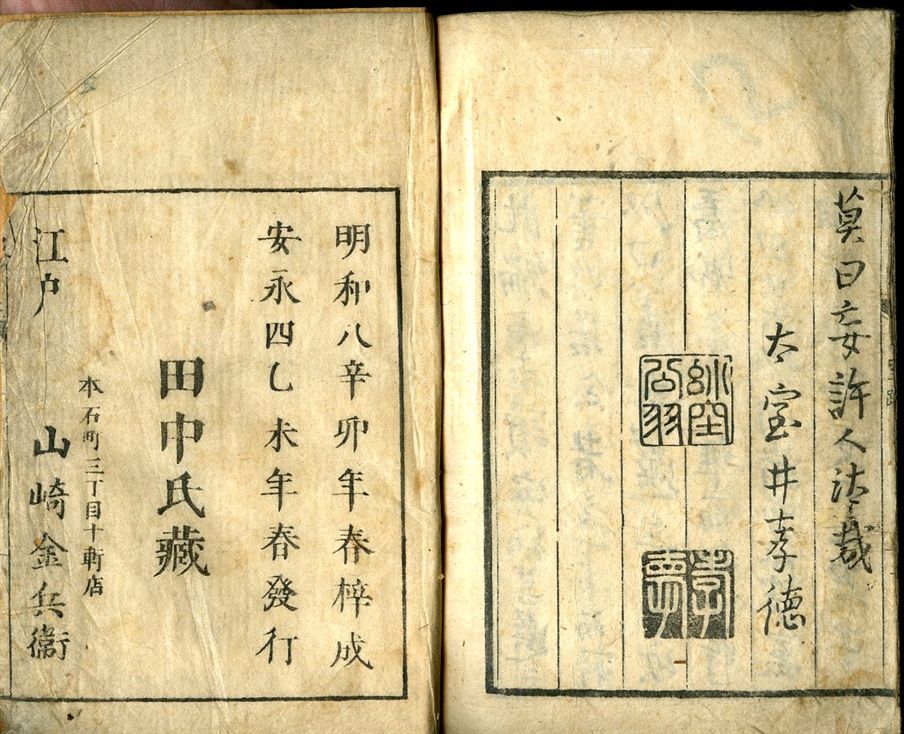 莫曰妄許人哉
太室井孝徳
明和八辛卯年春梓成
安永四乙未年春發行
田中氏藏
本石町三丁目十軒店
江戸 山崎金兵衛